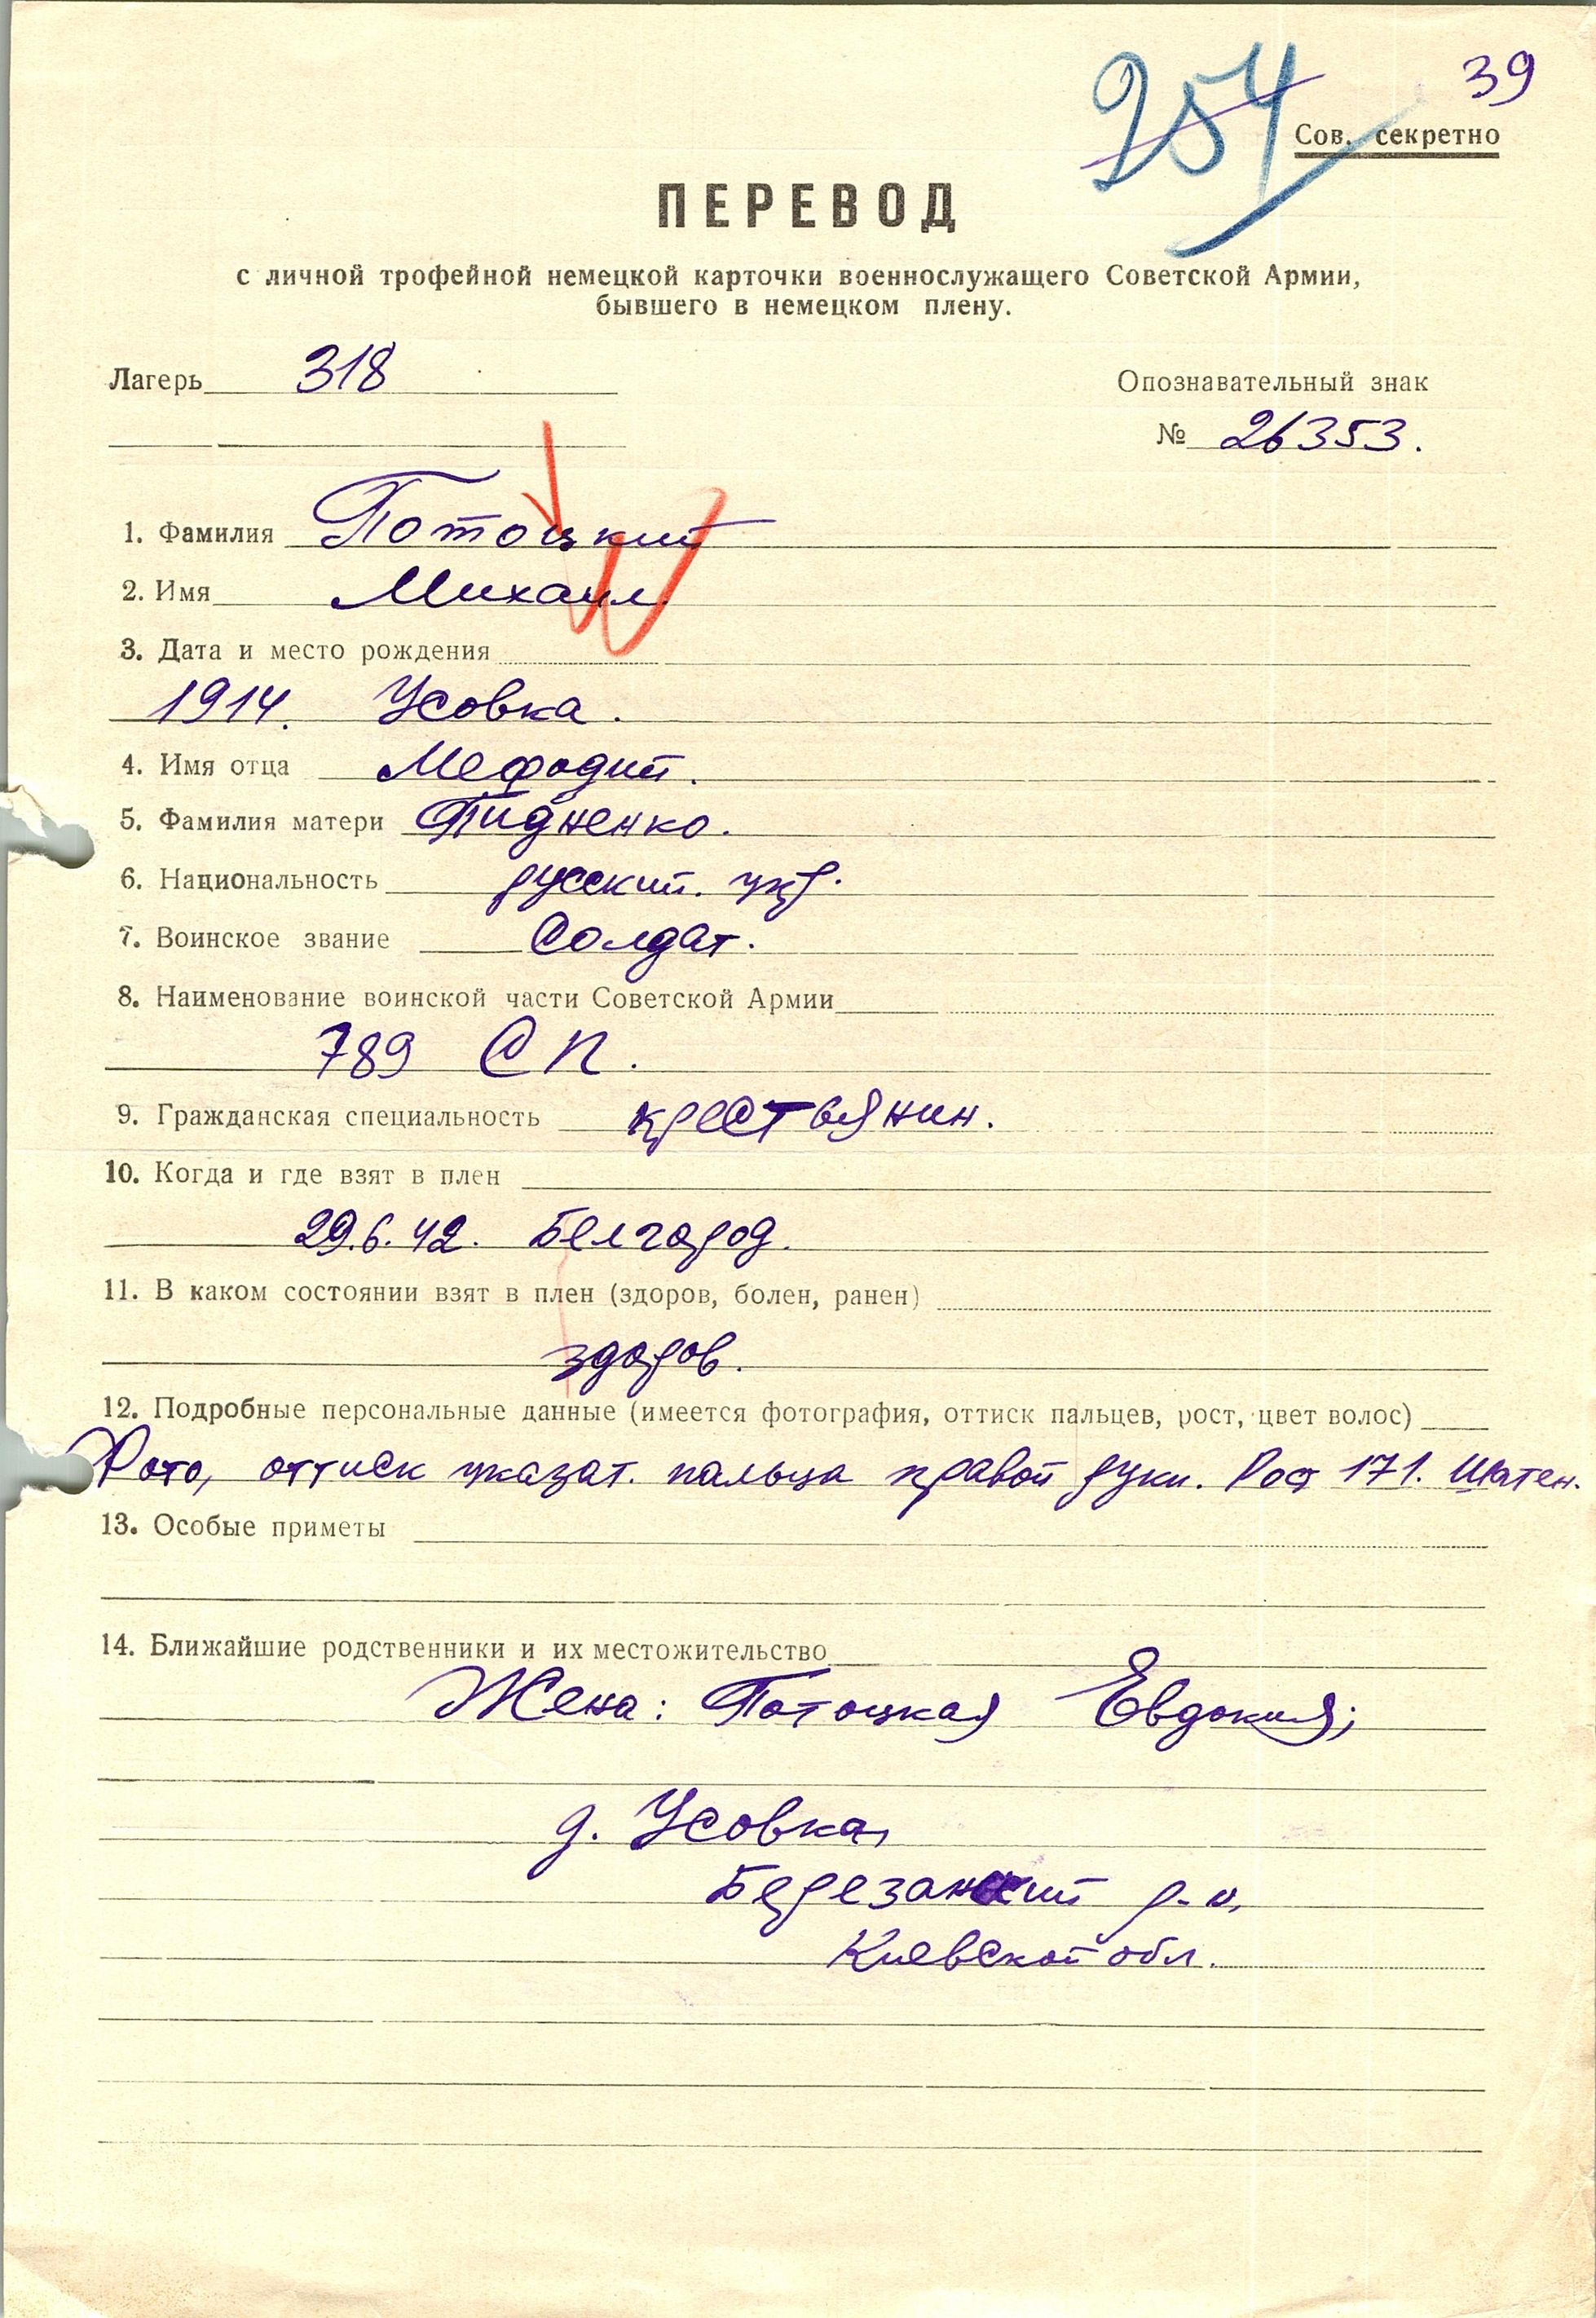 39
254
Сов. секретно
ПЕРЕВОД
с личной трофейной немецкой карточки военнослужащего Советской Армии,
бывшего в немецком плену.
Лагерь 318
Опознавательный знак
№ 26353.
1. Фамилия Потоцкий
2. Имя Михаил.
3. Дата и место рождения
1914. Усовка.
4. Имя отца Мефодий.
5. Фамилия матери Пидненко.
6. Национальность русский. укр.
7. Воинское звание Солдат.
8. Наименование воинской части Советской Армии
789 СП.
9. Гражданская специальность крестьянин.
10. Когда и где взят в плен
29.6.42. Белгород.
11. В каком состоянии взят в плен (здоров, болен, ранен)
здоров.
12. Подробные персональные данные (имеется фотография, оттиск пальцев, рост, цвет волос)
Фото, оттиск указат. пальца правой руки. Рост 171. Шатен.
13. Особые приметы
14. Ближайшие родственники и их местожительство
Жена: Потоцкая Евдокия;
д. Усовка,
Березанский р-н,
Киевской обл.